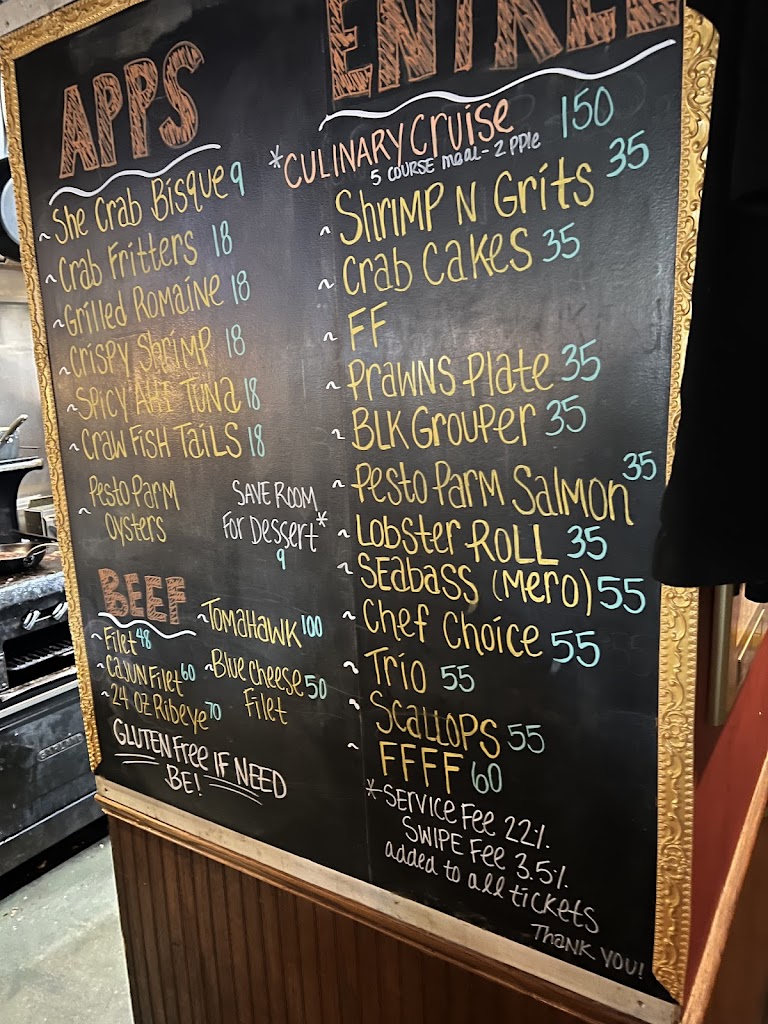 APPS
~ She Crab Bisque 9
~ Crab Fritters 18
~ Grilled Romaine 18
~ Crispy Shrimp 18
~ Spicy AHI Tuna 18
~ Craw Fish Tails 18
~ Pesto Parm
Oysters
SAVE ROOM
For Dessert*
9
BEEF
~ Filet 48
~ Cajun Filet 60
~ 24 oz Ribeye 70
~ TOMAHAWK 100
~ Blue Cheese 50
Filet
GLUTEN Free IF NEED
BE!
ENTREE
*CULINARY Cruise 150
5 COURSE meal - 2 PPle
~ Shrimp N Grits 35
~ Crab Cakes 35
~ FF
~ Prawns Plate 35
~ BLK Grouper 35
~ Pesto Parm Salmon 35
~ Lobster ROLL 35
~ SEabass (Mero) 55
~ Chef Choice 55
~ Trio 55
~ Scallops 55
~ FFFF 60
*SERVICE Fee 22%
SWIPE Fee 3.5%
added to all tickets
THANK YOU!